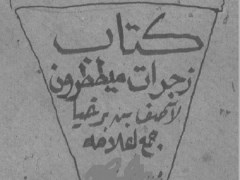 كتاب
زجرات ميططرون
لآصف بن برخيا
جمع لعلامه